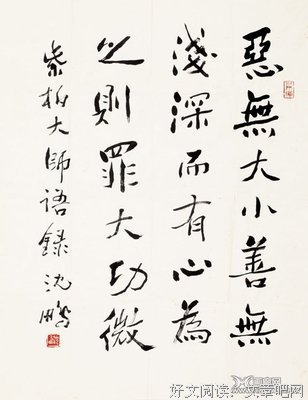 惡無大小善無
淺深而有心為
之則罪大功微
紫柏大師語錄沈鵬
好文阅读：文章吧网